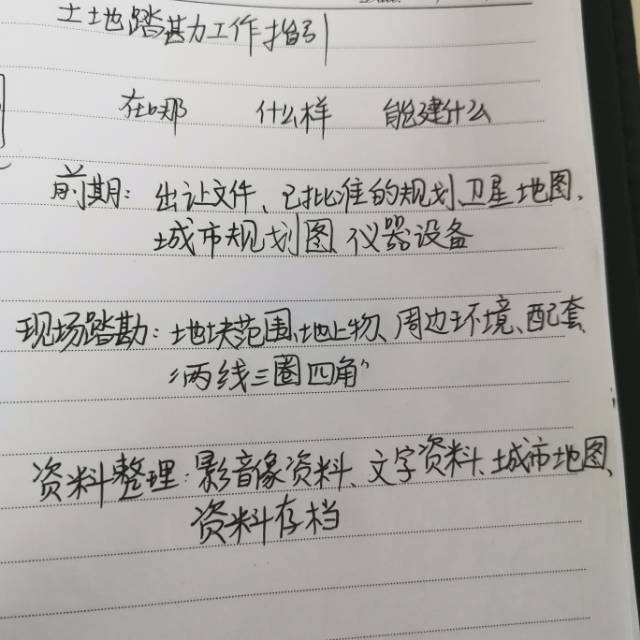 土地踏勘工作指引
在哪 什么样 能建什么
前期：出让文件、已批准的规划、卫星地图、
城市规划图、仪器设备
现场踏勘：地块范围、地上物、周边环境、配套、
“两线三圈四角”
资料整理：影音像资料、文字资料、城市地图、
资料存档